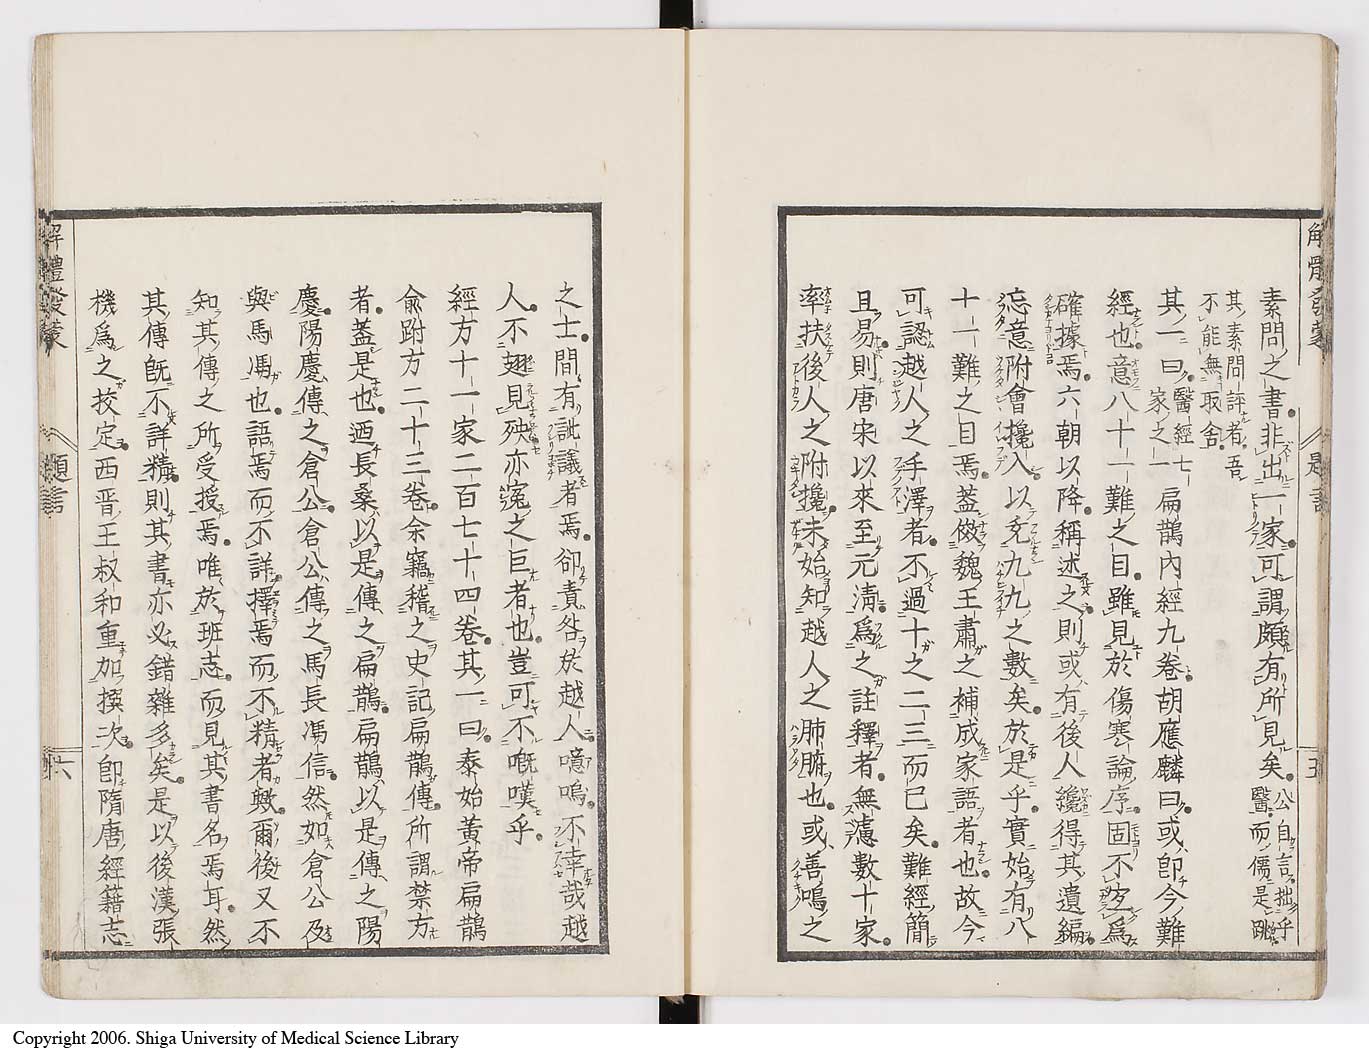 解體發蒙
題言
五
素問之書非出一家可謂頗有所見矣公自言拙乎
醫而儒是眺
其素問評者吾
不能無取舍
其一曰醫經七
家之一
扁鵲內經九卷胡應麟曰或卽今難
經也意八十一難之目雖見於傷寒論序固不必爲
確據焉六朝以降稱述之則或有後人纔得其遺編
忘意附會攙入以充九九之數矣於是乎實始有八
十一難之目焉蓋傚魏王肅之補成家語者也故今
可認越人之手澤者不過十之二三而已矣難經簡
且易則唐宋以來至元淸爲之註釋者無慮數十家
率扶後人之附攙未始知越人之肺腑也或善鳴之
之士間有訛議者焉卻責咎於越人噫嗚不幸哉越
人不翅見殃亦寃之巨者也豈可不嘅嘆乎
經方十一家二百七十四卷其一曰泰始黃帝扁鵲
兪跗方二十三卷余竊稽之史記扁鵲傳所謂禁方
者蓋是也迺長桑以是傳之扁鵲扁鵲以是傳之陽
慶陽慶傳之倉公倉公傳之馬長馮信然如倉公及
與馬馮也語焉而不詳擇焉而不精者歟爾後又不
知其傳之所受授焉唯於班志而見其書名焉耳然
其傳旣不詳精則其書亦必錯雜多矣是以後漢張
機爲之挍定西晋王叔和重加撰次卽隋唐經籍志
解體發蒙
題言
六
Copyright 2006. Shiga University of Medical Science Library